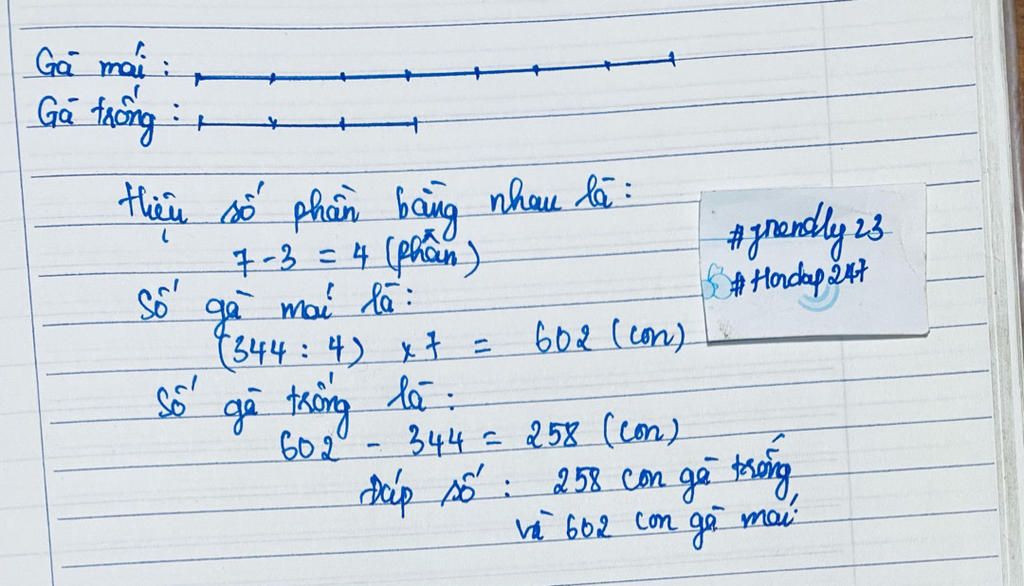 Gà mái :
Gà trống :
Hiệu số phần bằng nhau là :
7 - 3 = 4 (phần)
Số gà mái là :
(344 : 4) x 7 = 602 (con)
Số gà trống là :
602 - 344 = 258 (con)
Đáp số : 258 con gà trống
và 602 con gà mái
#friendly 23
#Hoidap247